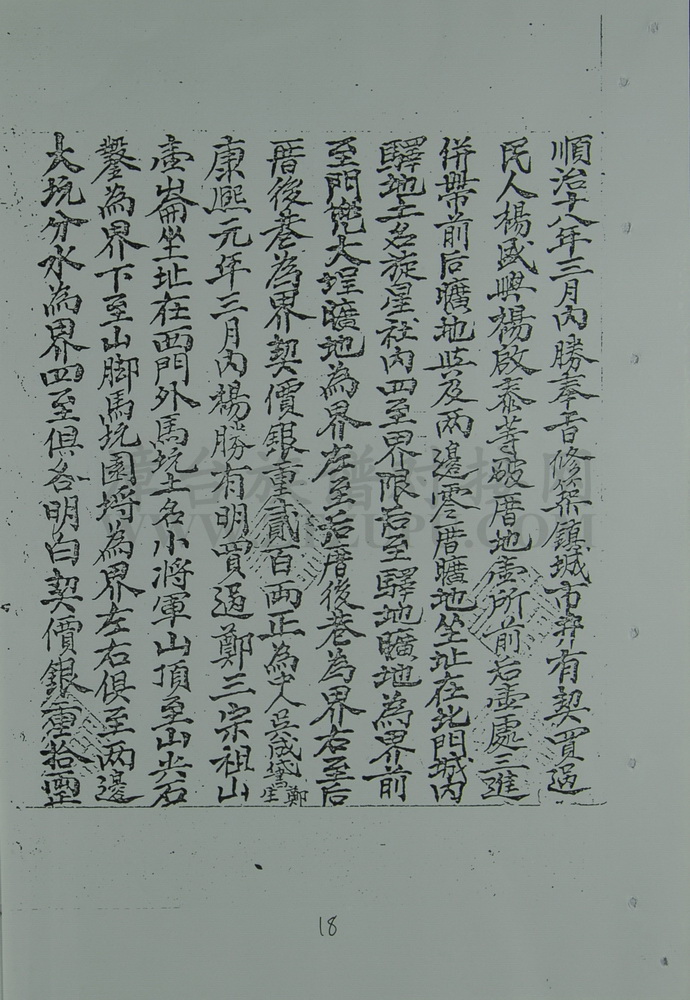 順治十八年三月內勝奉旨修築鎮城市井有契買過
民人楊盛興楊啟泰等破厝地壹所前后壹處三進
併帶前后曠地些及两邊零厝曠地坐址在北門城內
驛地土名旋星社內四至界限后至驛地曠地為界前
至門兜大埕曠地為界左至后厝後巷為界右至后
厝後巷為界契價銀重貳百两正為中人吳成黨鄭生
康熙元年三月內楊勝有明買過鄭三宗祖山
壹崙坐址在西門外馬坑土名小將軍山頂至山尖石
鑿為界下至山脚馬坑園埒為界左右俱至两邊
大坑分水為界四至俱各明白契價銀重拾両
18